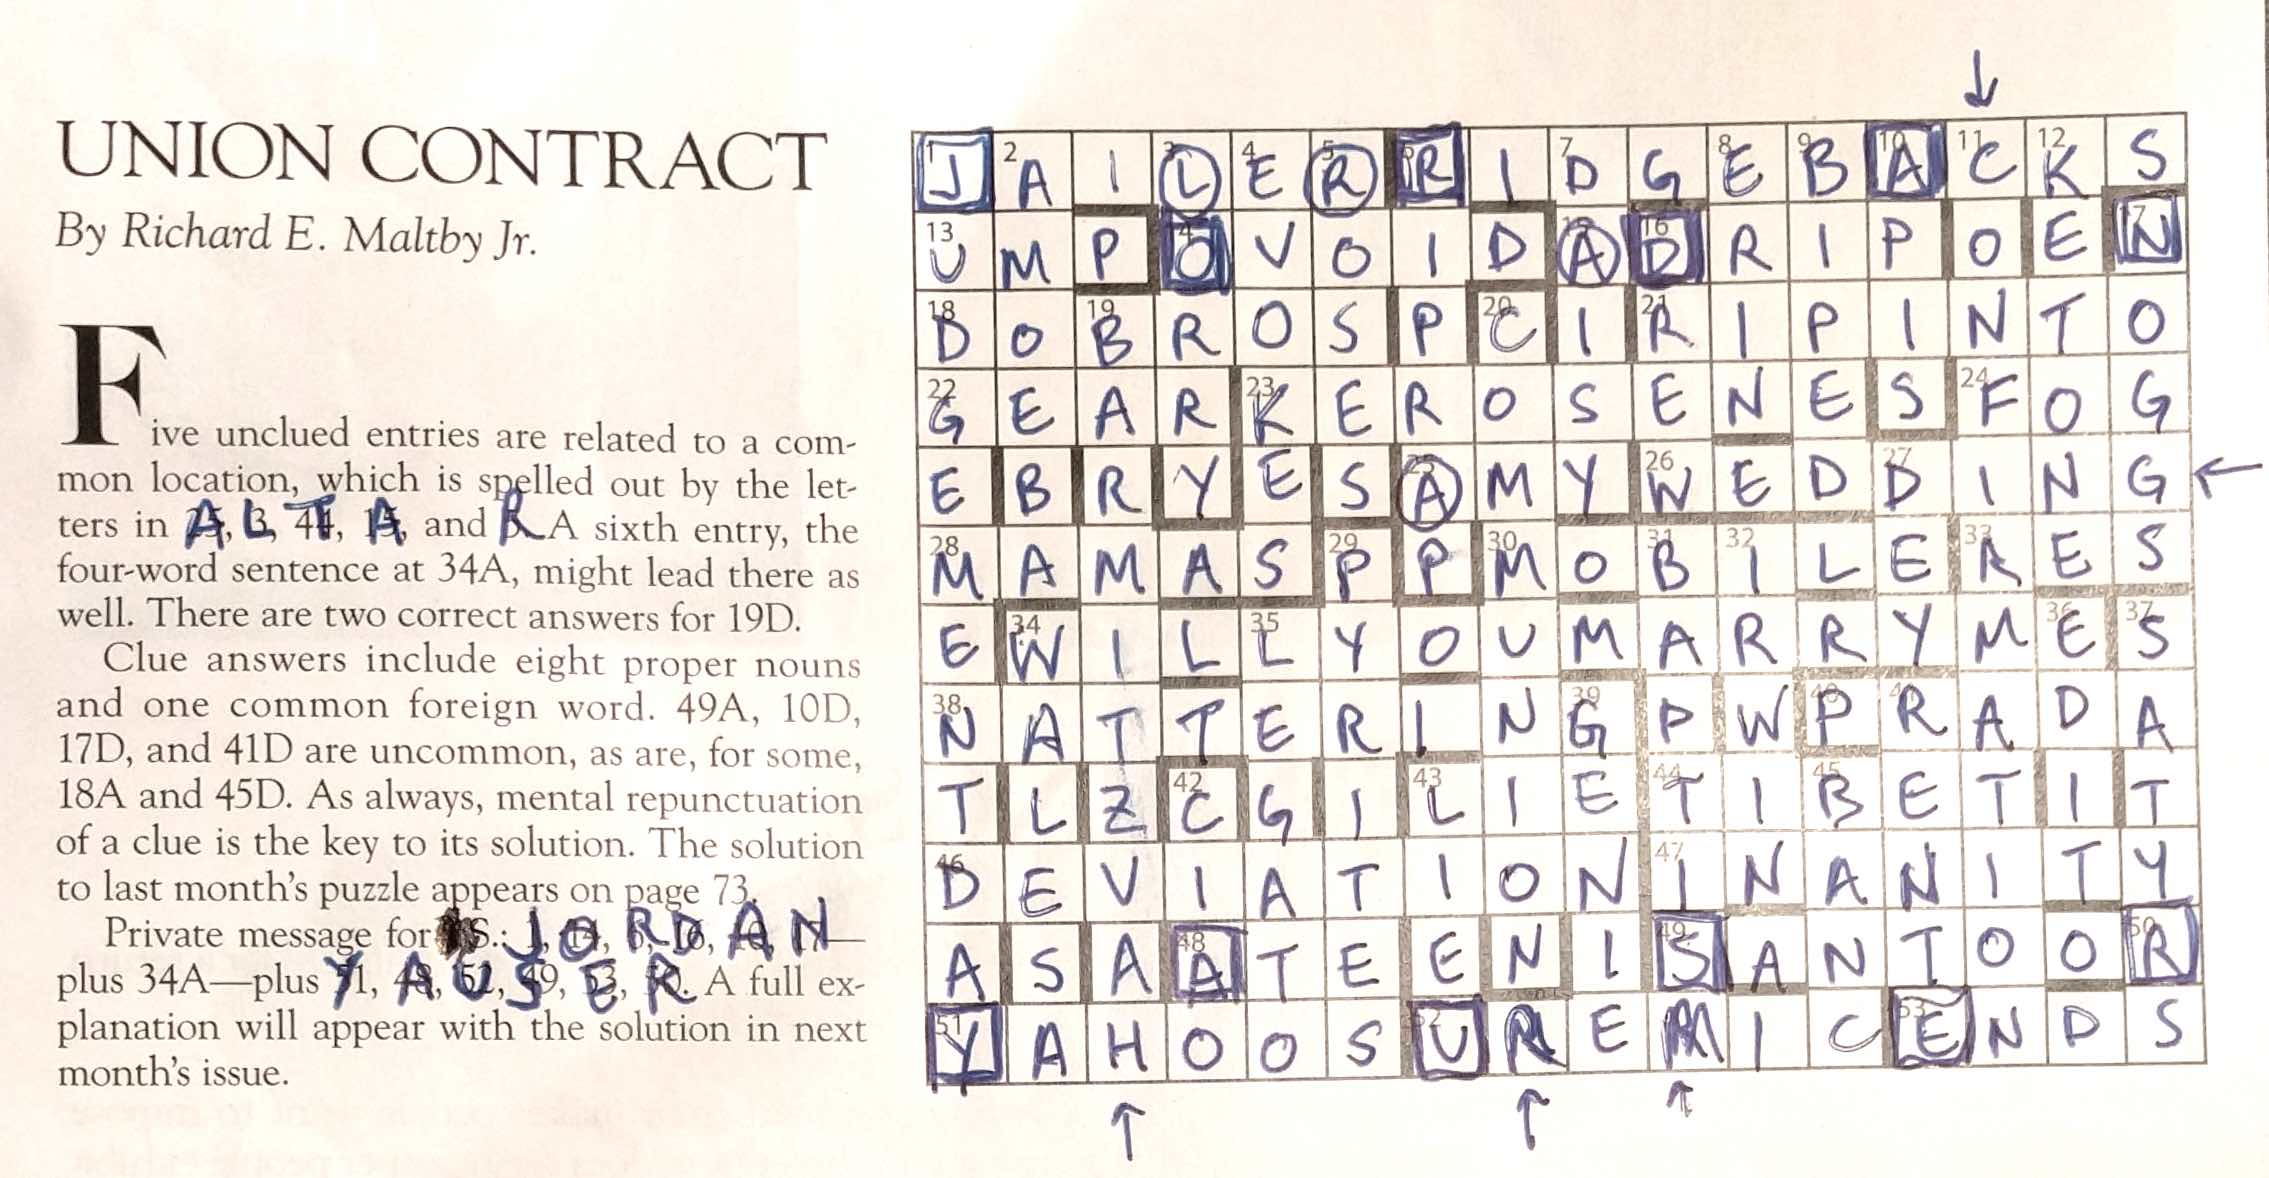 UNION CONTRACT
By Richard E. Maltby Jr.
Five unclued entries are related to a com-
mon location, which is spelled out by the let-
ters in A, L, T, A, and R A sixth entry, the
four-word sentence at 34A, might lead there as
well. There are two correct answers for 19D.
Clue answers include eight proper nouns
and one common foreign word. 49A, 10D,
17D, and 41D are uncommon, as are, for some,
18A and 45D. As always, mental repunctuation
of a clue is the key to its solution. The solution
to last month's puzzle appears on page 73.
Private message for S.: J, O, R, D, A, N—
plus 34A—plus Y, A, U, S, E, R. A full ex-
planation will appear with the solution in next
month's issue.
1 J 2 A I 3 L 4 E 5 R 6 R I 7 D G 8 E 9 B 10 A 11 C 12 K S
13 U M P 14 O V O I D 15 A 16 D R I P O E 17 N
18 D O 19 B R O S P 20 C I 21 R I P I N T O
22 G E A R 23 K E R O S E N E S 24 F O G
E B R Y E S 25 A M Y 26 W E D 27 D I N G
28 M A M A S 29 P P 30 M O 31 B 32 I L E 33 R E S
E 34 W I L 35 L Y O U M A R R Y M 36 E 37 S
38 N A T T E R I N 39 G P W 40 P 41 R A D A
T L Z 42 C G I 43 L I E 44 T I 45 B E T I T
46 D E V I A T I O N 47 I N A N I T Y
A S A 48 A T E E N I 49 S A N T O O 50 R
51 Y A H O O S 52 U R E M I C 53 E N D S